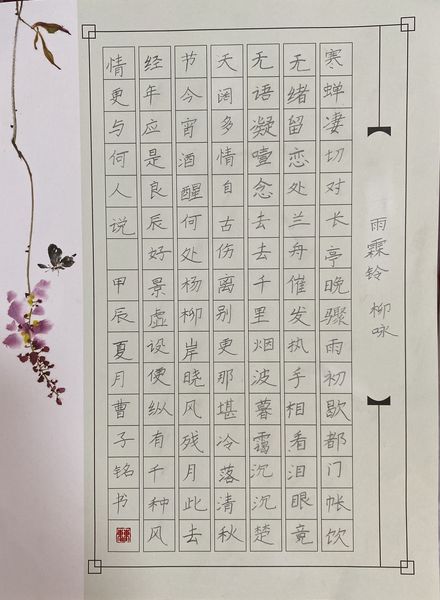 雨霖铃 柳咏
寒蝉凄切对长亭晚骤雨初歇都门帐饮
无绪留恋处兰舟催发执手相看泪眼竟
无语凝噎念去去千里烟波暮霭沉沉楚
天阔多情自古伤离别更那堪冷落清秋
节今宵酒醒何处杨柳岸晓风残月此去
经年应是良辰好景虚设便纵有千种风
情更与何人说 甲辰夏月曹子铭书